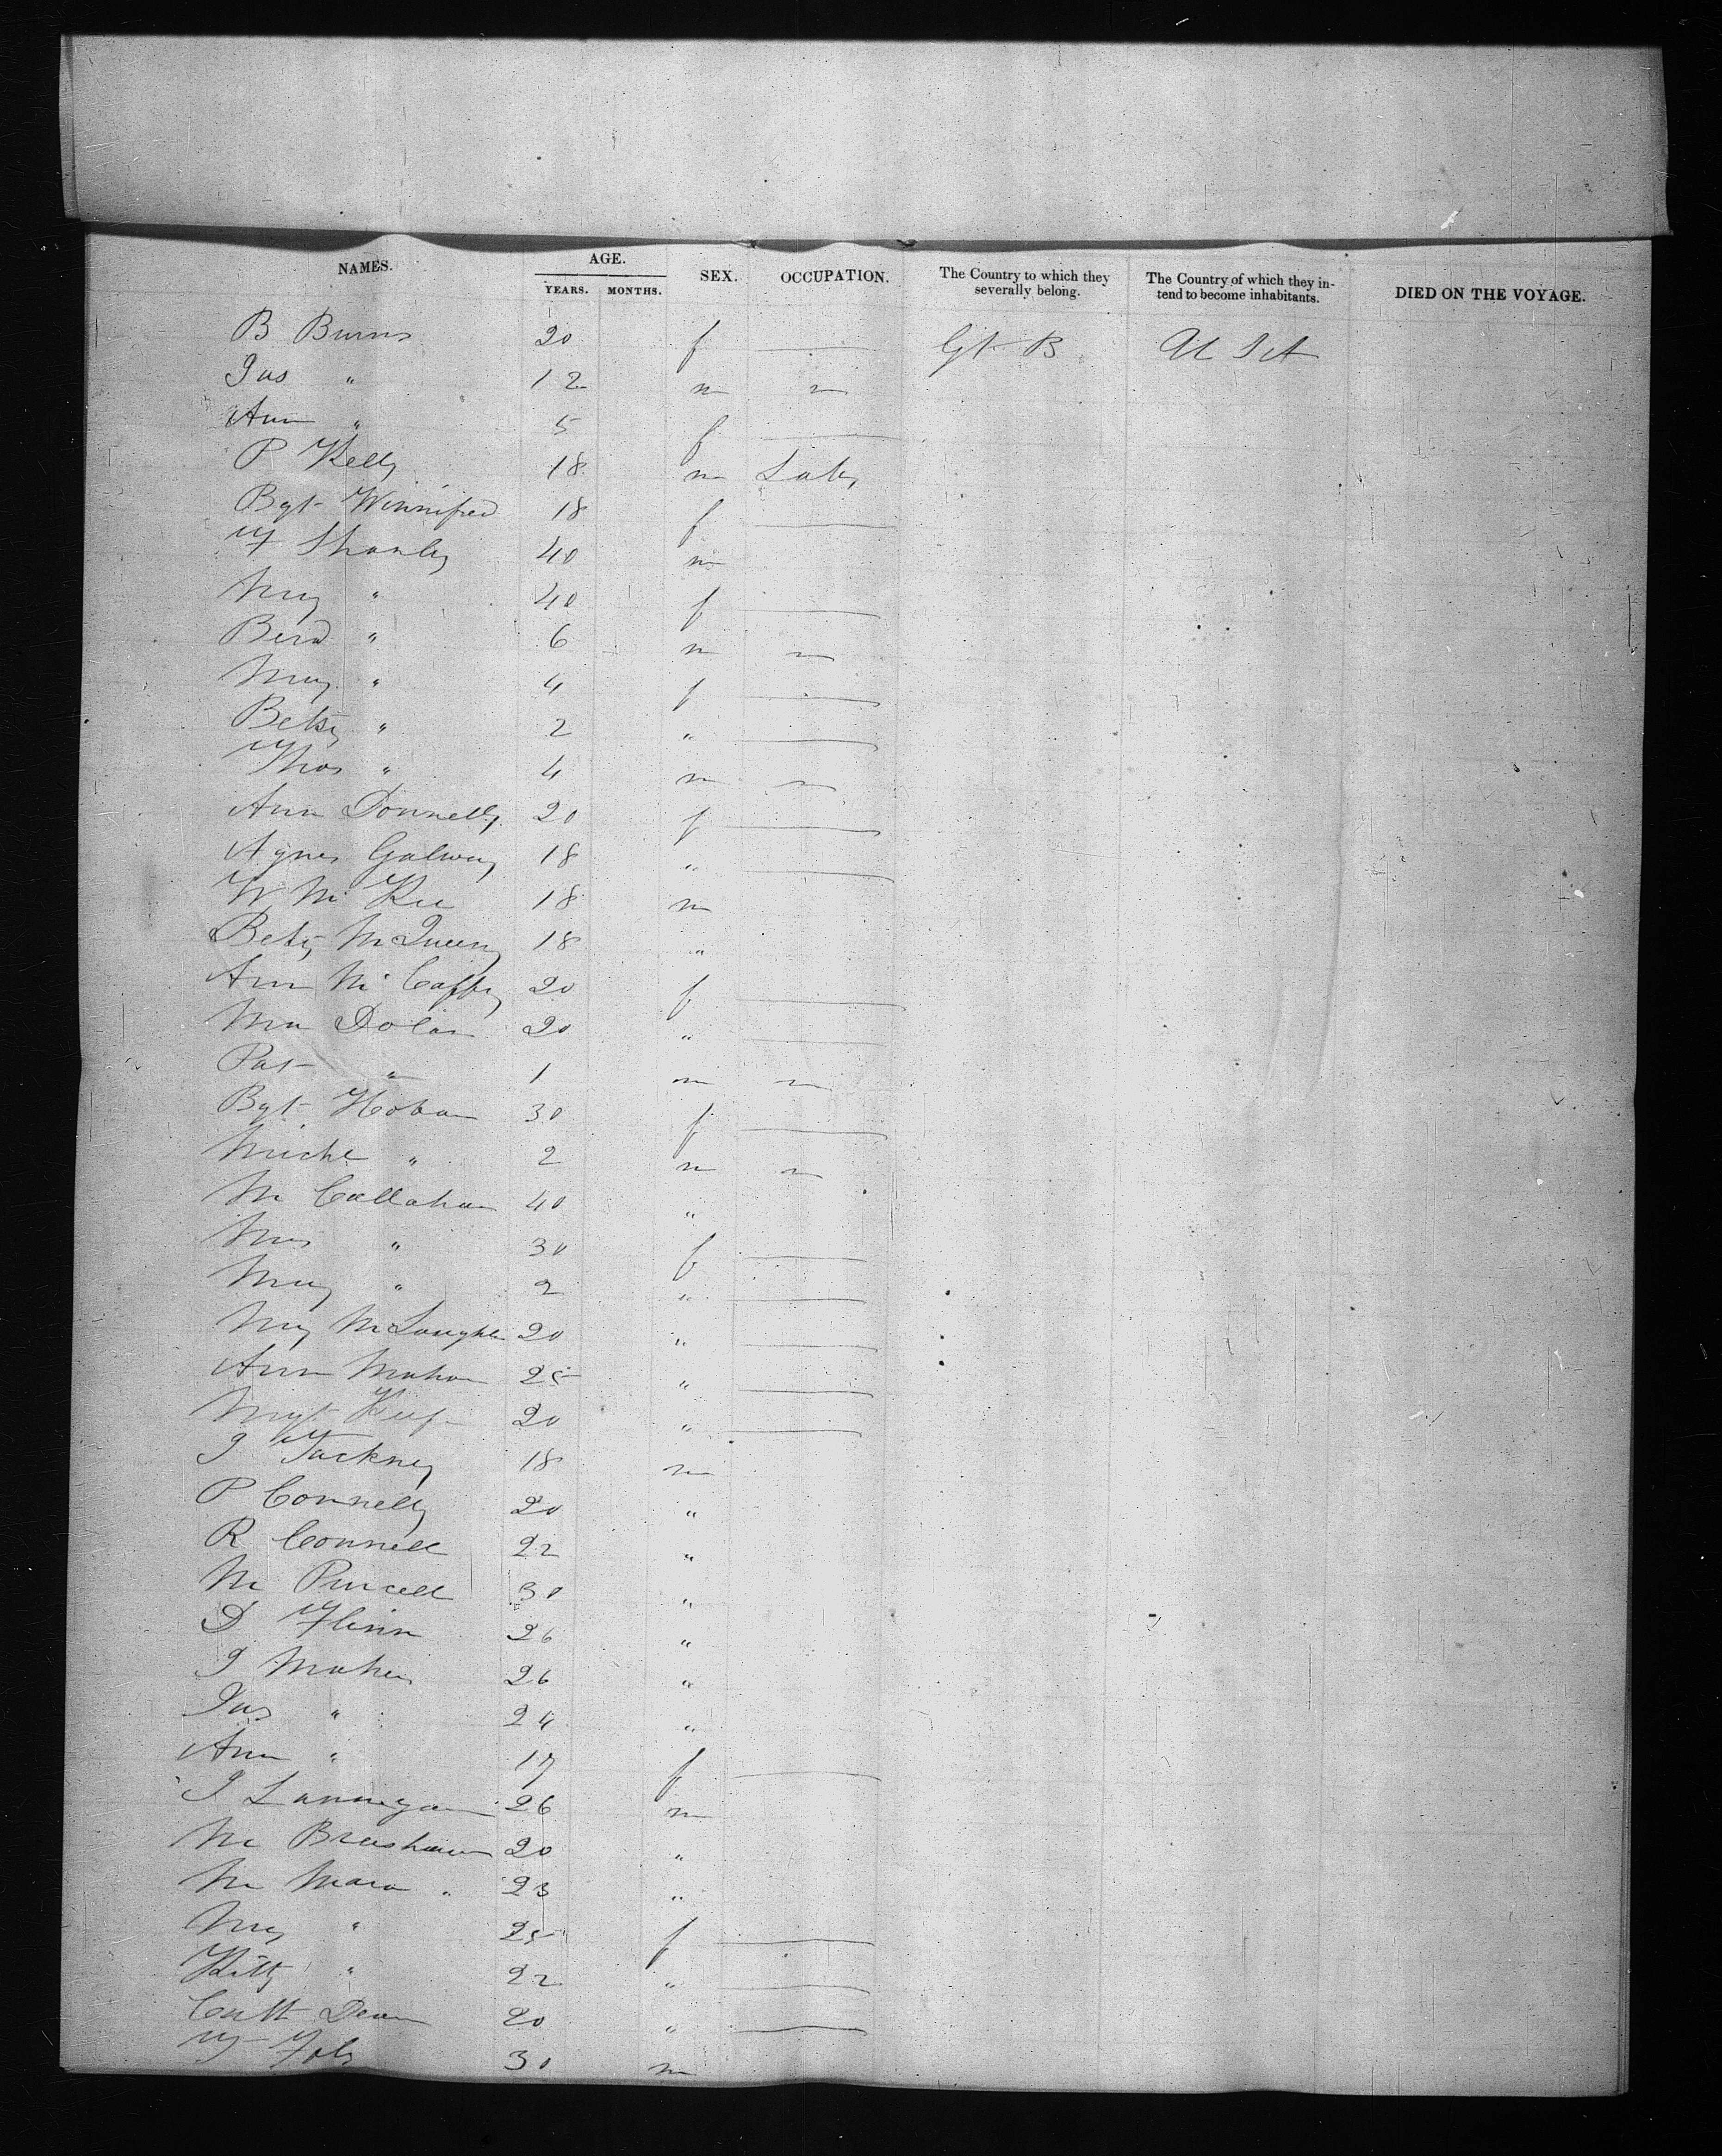 NAMES. AGE. SEX. OCCUPATION. The Country to which they severally belong. The Country of which they intend to become inhabitants. DIED ON THE VOYAGE.
YEARS. MONTHS.
B Burns 20 f — Gt B U St
Jas " 12 m ~
Ann " 5 f —
P Kelly 18 m Labr
Bgt Winnifred 18 f —
T Shanley 40 m
Mry " 40 f —
Bernd " 6 m ~
Mary " 4 f —
Betsy " 2 " —
Thos " 4 m ~
Ann Donnelly 20 f —
Agnes Galway 18 " —
W Mc Kee 18 m
Betsy McQueeny 18 "
Ann Mc Caffry 20 f —
Mra Dolan 20 " —
Pat " 1 m ~
Bgt Hoban 30 f —
Michl " 2 m ~
M Callahan 40 "
Mrs " 30 f —
Mary " 2 " —
Mry McLaughln 20 " —
Ann Mahon 25 " —
Mrgt Keef 20 " —
J Tackney 18 m
P Connelly 20 "
R Connell 22 "
M Purcell 30 "
D Flinn 26 "
J Maher 26 "
Jas " 24 "
Ann " 17 f —
J Lannegan 26 m
M Breshawn 20 "
M Mara " 23 "
Mry " 25 f —
Kitty " 22 " —
Cath Dean 20 " —
T Foly 30 m